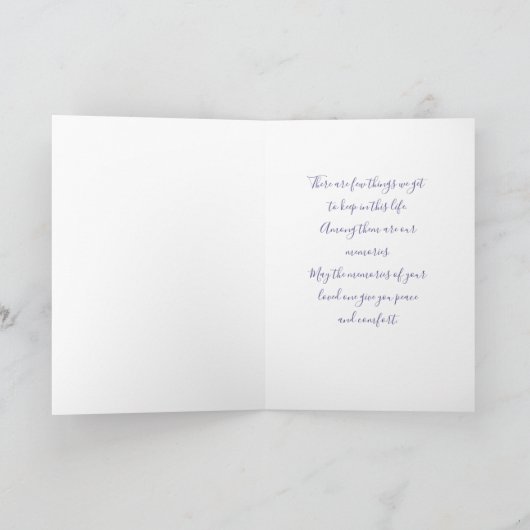 There are few things we get
to keep in this life.
Among them are our
memories.
May the memories of your
loved one give you peace
and comfort.